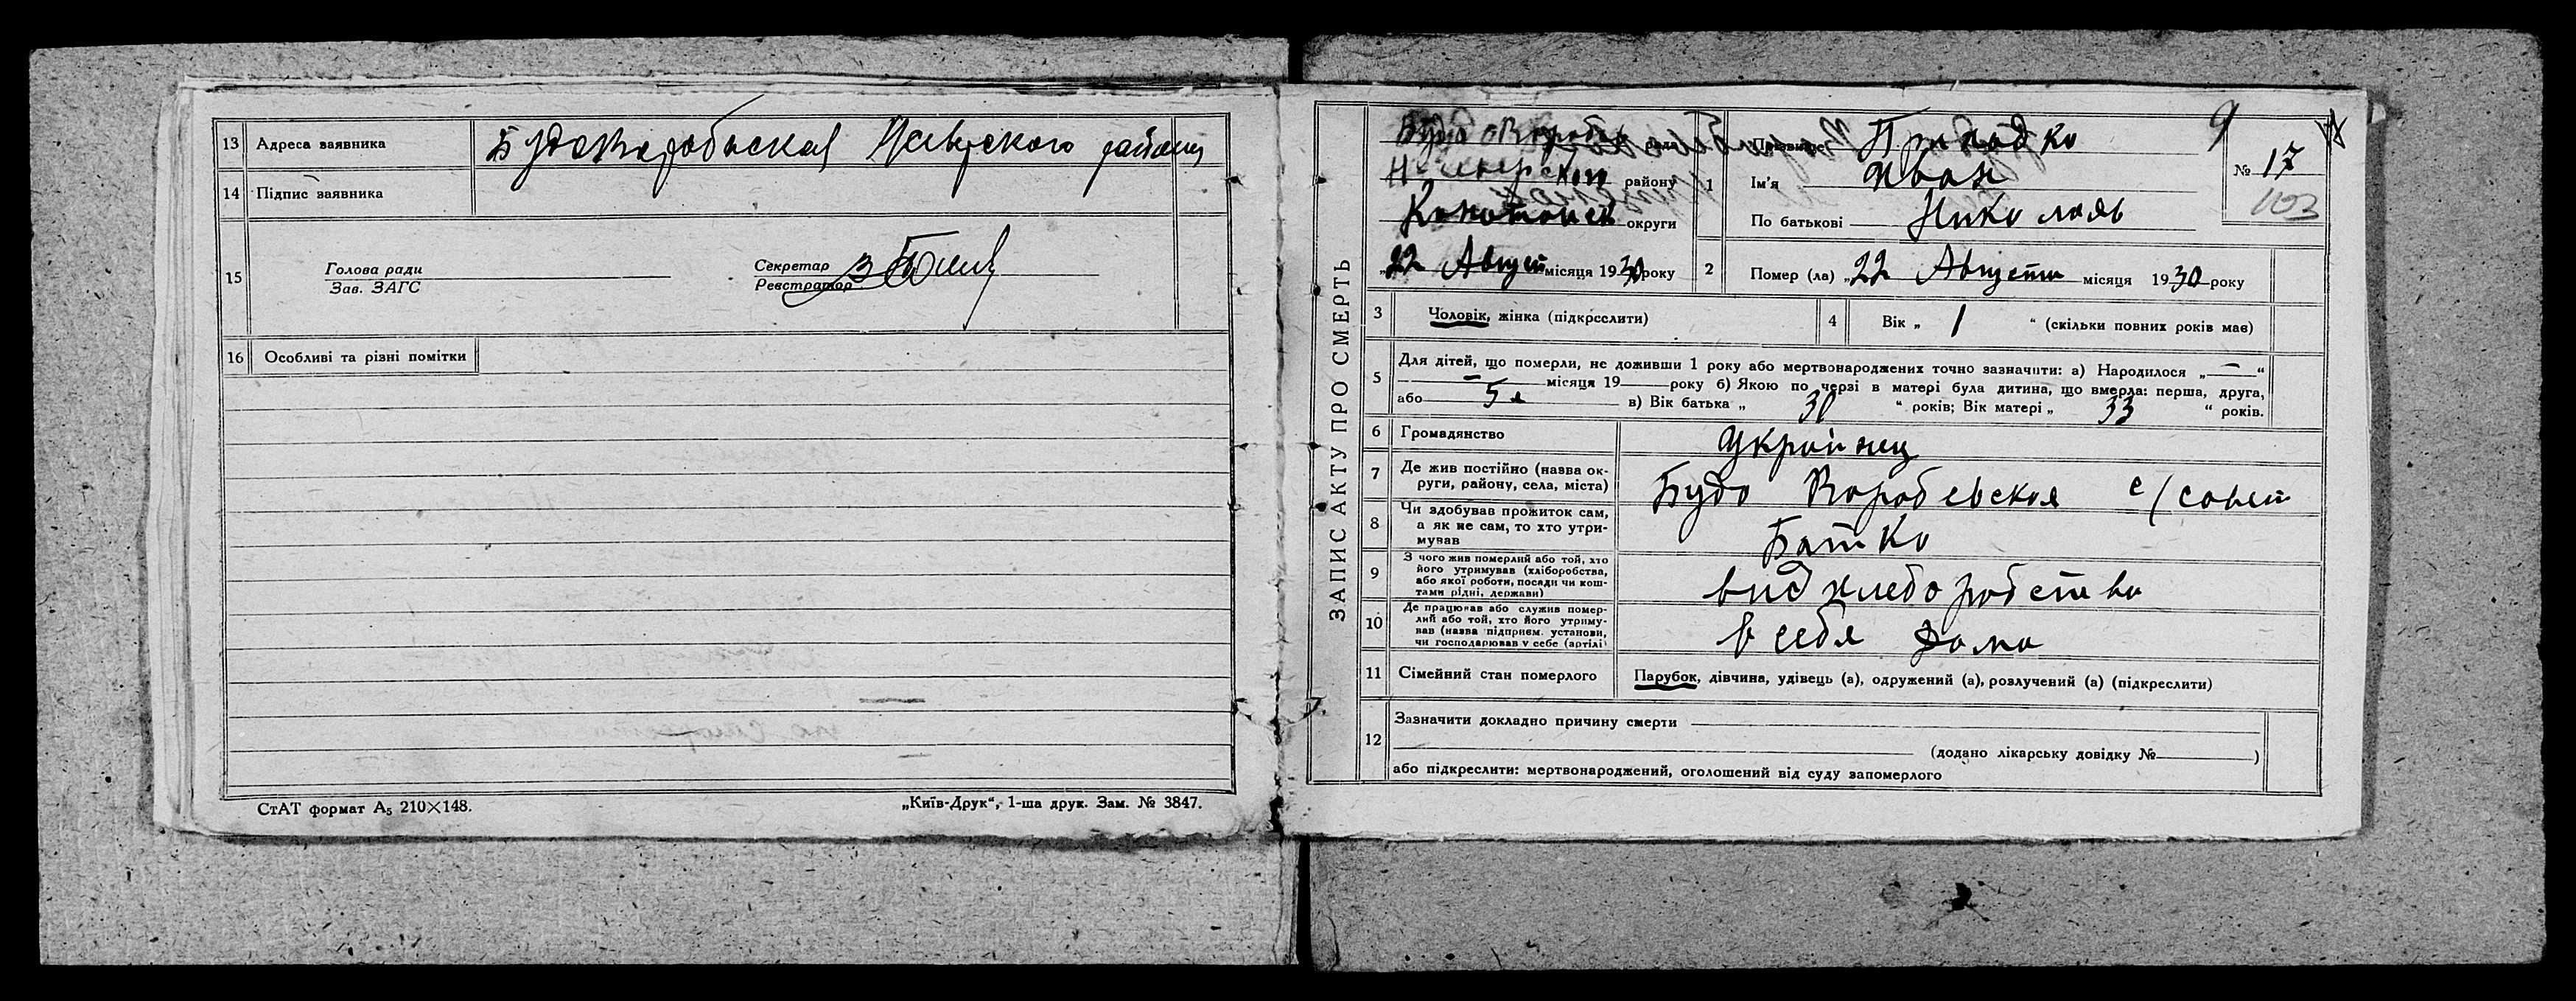 13 Адреса заявника Будо Воробьевская Н Сиверского району
14 Підпис заявника
15 Голова ради
Зав. ЗАГС
Секретар
Реєстратор
16 Особливі та різні помітки
СтАТ формат А₅ 210×148.
„Київ-Друк“, 1-ша друк. Зам. № 3847.
ЗАПИС АКТУ ПРО СМЕРТЬ
Будо Воробев ради
району
округи
„22 Август місяця 1930 року
1 Прізвище
Ім'я Иван
По батькові Николаев
9
№ 17
103
2 Помер (ла) „22 Августа місяця 1930 року
3 Чоловік, жінка (підкреслити)
4 Вік „ 1 “ (скільки повних років має)
5 Для дітей, що померли, не доживши 1 року або мертвонароджених точно зазначити: а) Народилося „ — “
— місяця 19 року б) Якою по черзі в матері була дитина, що вмерла: перша, друга,
або 5я в) Вік батька „ “ років; Вік матері „ 33 “ років.
6 Громадянство Украйнец
7 Де жив постійно (назва ок-
руги, району, села, міста) Будо Воробевская с/совет
8 Чи здобував прожиток сам,
а як не сам, то хто утри-
мував Батко
9 З чого жив померлий або той, хто
його утримував (хліборобства,
або якої роботи, посади чи кош-
тами рідні, держави) вид хлеборобства
10 Де працював або служив помер-
лий або той, хто його утриму-
вав (назва підприєм. установи,
чи господарював у себе (артілі) в себя дома
11 Сімейний стан померлого Парубок, дівчина, удівець (а), одружений (а), розлучений (а) (підкреслити)
12 Зазначити докладно причину смерти
(додано лікарську довідку № )
або підкреслити: мертвонароджений, оголошений від суду запомерлого